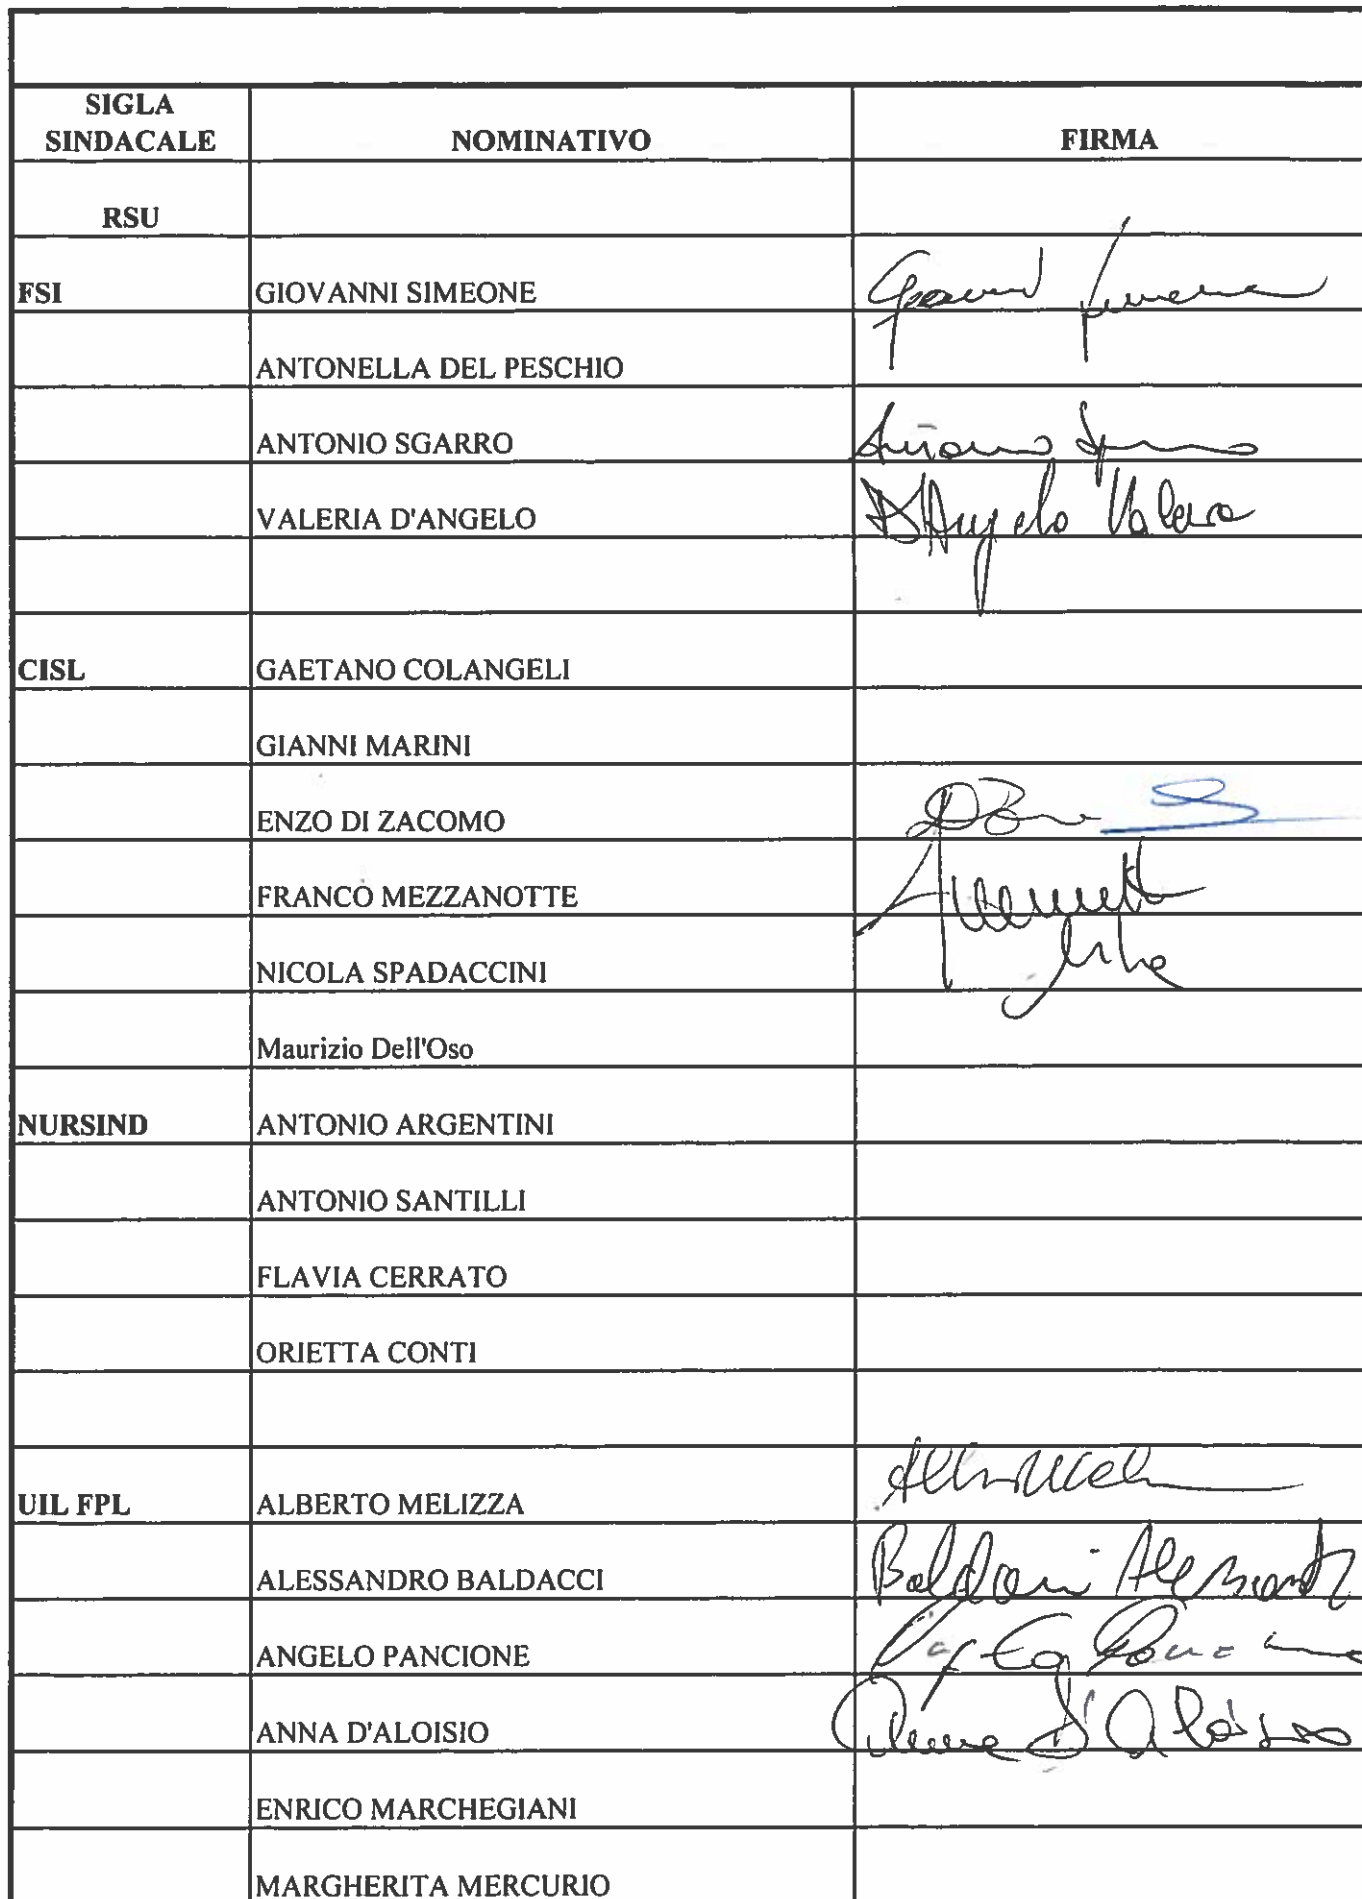 SIGLA
SINDACALE NOMINATIVO FIRMA
RSU
FSI GIOVANNI SIMEONE
ANTONELLA DEL PESCHIO
ANTONIO SGARRO Antonio
VALERIA D'ANGELO D'Angelo Valeria
CISL GAETANO COLANGELI
GIANNI MARINI
ENZO DI ZACOMO
FRANCO MEZZANOTTE
NICOLA SPADACCINI
Maurizio Dell'Oso
NURSIND ANTONIO ARGENTINI
ANTONIO SANTILLI
FLAVIA CERRATO
ORIETTA CONTI
UIL FPL ALBERTO MELIZZA
ALESSANDRO BALDACCI Baldacci Alessandro
ANGELO PANCIONE
ANNA D'ALOISIO Anna D'Aloisio
ENRICO MARCHEGIANI
MARGHERITA MERCURIO